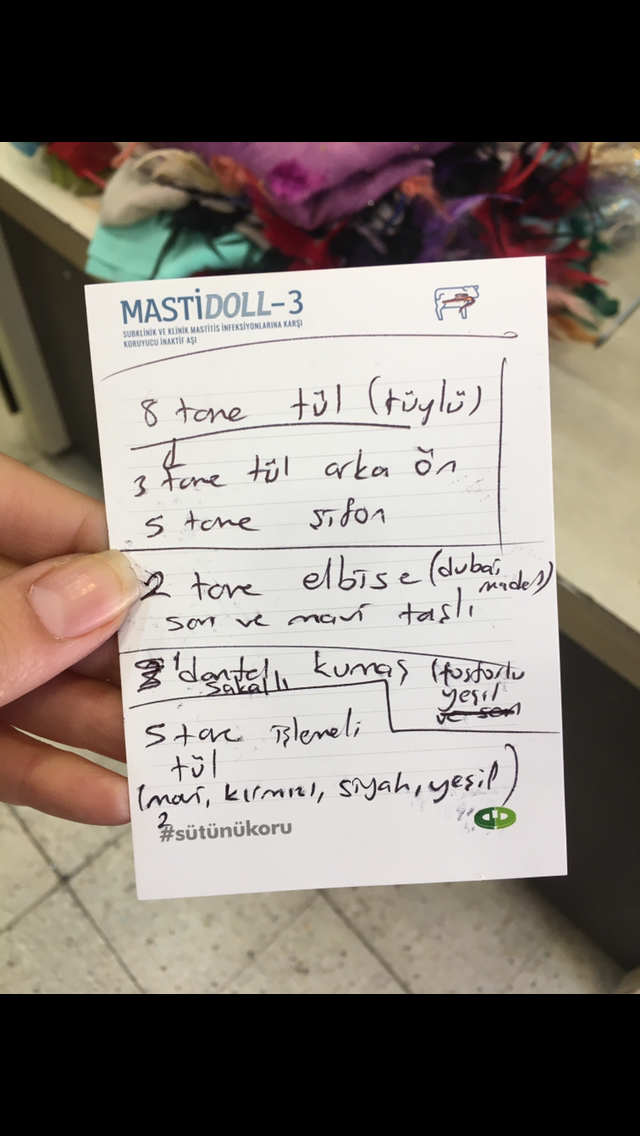 MASTİDOLL-3
SUBKLİNİK VE KLİNİK MASTİTİS İNFEKSİYONLARINA KARŞI
KORUYUCU İNAKTİF AŞI
8 tane tül (tüylü)
3 tane tül arka ön
5 tane şifon
2 tane elbise (dubai model)
sarı ve mavi taşlı
1 dantel kumaş (fosforlu
sakallı yeşil
ve sarı
5 tane işlemeli
tül
(mavi, kırmızı, siyah, yeşil)
2
#sütünükoru